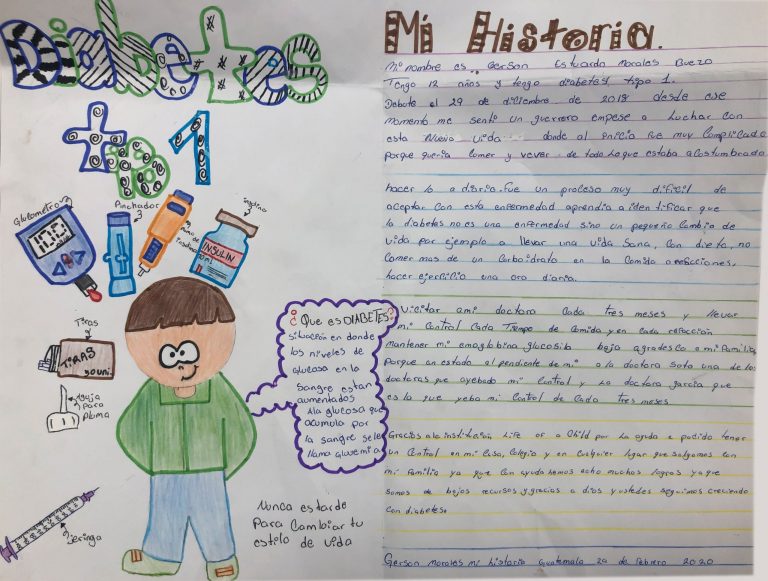 Diabetes
tip 1
Glucometro
100
Pinchador
Insulina
INSULIN
Tiras
TIRAS
50 uni.
Aguja
para
Pluma
jeringa
¿Que es DIABETES?
situación en donde
los niveles de
Glucosa en la
Sangre estan
aumentados
A la glucosa que
acumula por
la sangre se le
llama Gluxemia
Nunca estarde
Para Cambiar tu
estilo de vida
Mi Historia.
Mi nombre es Gerson Estuardo Morales Buezo
Tengo 12 años y tengo diabetes tipo 1.
Debute el 29 de diciembre de 2018 desde ese
momento me senti un guerrero empese a Luchar con
esta Nueva vida donde al inicio fue muy Complicado
porque queria Comer y vever de todo Lo que estaba acostumbrado
hacer lo a diario. Fue un proceso muy dificil de
aceptar. Con esta enfermedad aprendia identificar que
la diabetes no es una enfermedad sino un pequeño Cambio de
vida por ejemplo a llevar una vida Sana, Con dieta, no
Comer mas de un Carboidrato en la Comida o refacciones.
hacer ejercicio una ora diaria.
Vicitar ami doctora Cada tres meses y llevar
mi Control Cada Tiempo de Comida y en cada refaccion
mantener mi emoglobina glucosila baja agradesco a mi Familia
Porque an estado al pendiente de mi a la doctora Soto una de las
doctoras que ayebado mi Control y La doctora garcia que
es la que yeba mi Control de Cada tres meses
Gracias a la institucion Life for a Child por La ayuda e podido tener
un Control en mi Casa, Colegio y en Cualquier lugar que salgamos con
mi Familia ya que Con ayuda hemos echo muchos Logros ya que
somos de bajos recursos y gracias a dios y ustedes seguimos creciendo
con diabetes.
Gerson Morales mi historia Guatemala 20 de Febrero 2020